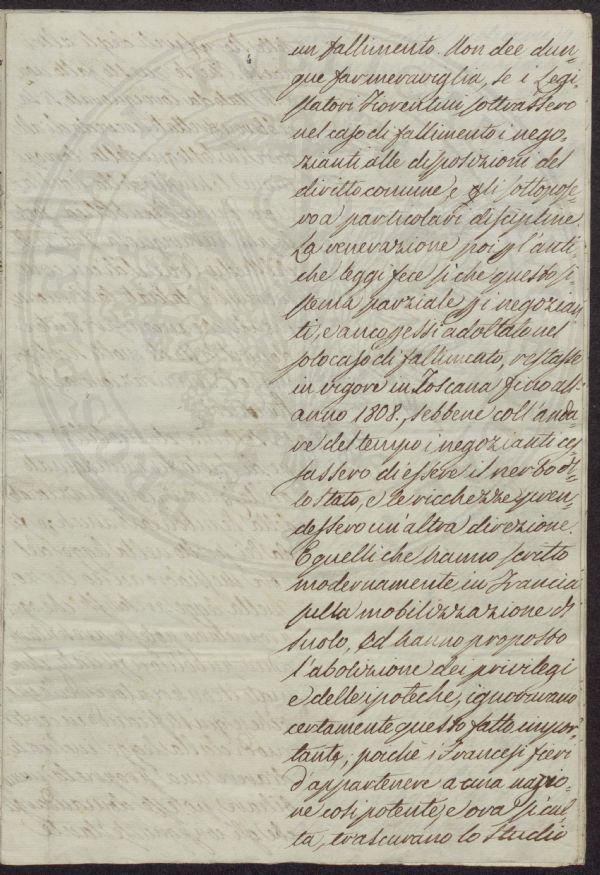 un fallimento. Non dee dun-
que far meraviglia, se i Legi-
slatori Fiorentini sottrassero
nel caso di fallimento i nego-
zianti alle disposizioni del
diritto comune, e gli sottopose-
ro a particolari discipline
La venerazione poi p l'anti-
che leggi fece si che questo si-
stema parziale pi negozian-
ti, e ancogessi adottato nel
solo caso di fallimento, restasse
in vigore in Toscana fino all'
anno 1808., sebbene coll'anda-
re del tempo i negozianti ces-
sassero di essere il nerbo del-
lo Stato, e le ricchezze pren-
dessero un altra direzione.
E quelli che hanno scritto
modernamente in Francia
sulla mobilizzazione del
suolo, ed hanno proposto
l'abolizione dei privilegi
e delle ipoteche, ignoravano
certamente questo fatto impor-
tante; poichè i Francesi fieri
d'appartenere a una nazio-
ne così potente, e ora si cul-
ta, trascurano lo studio